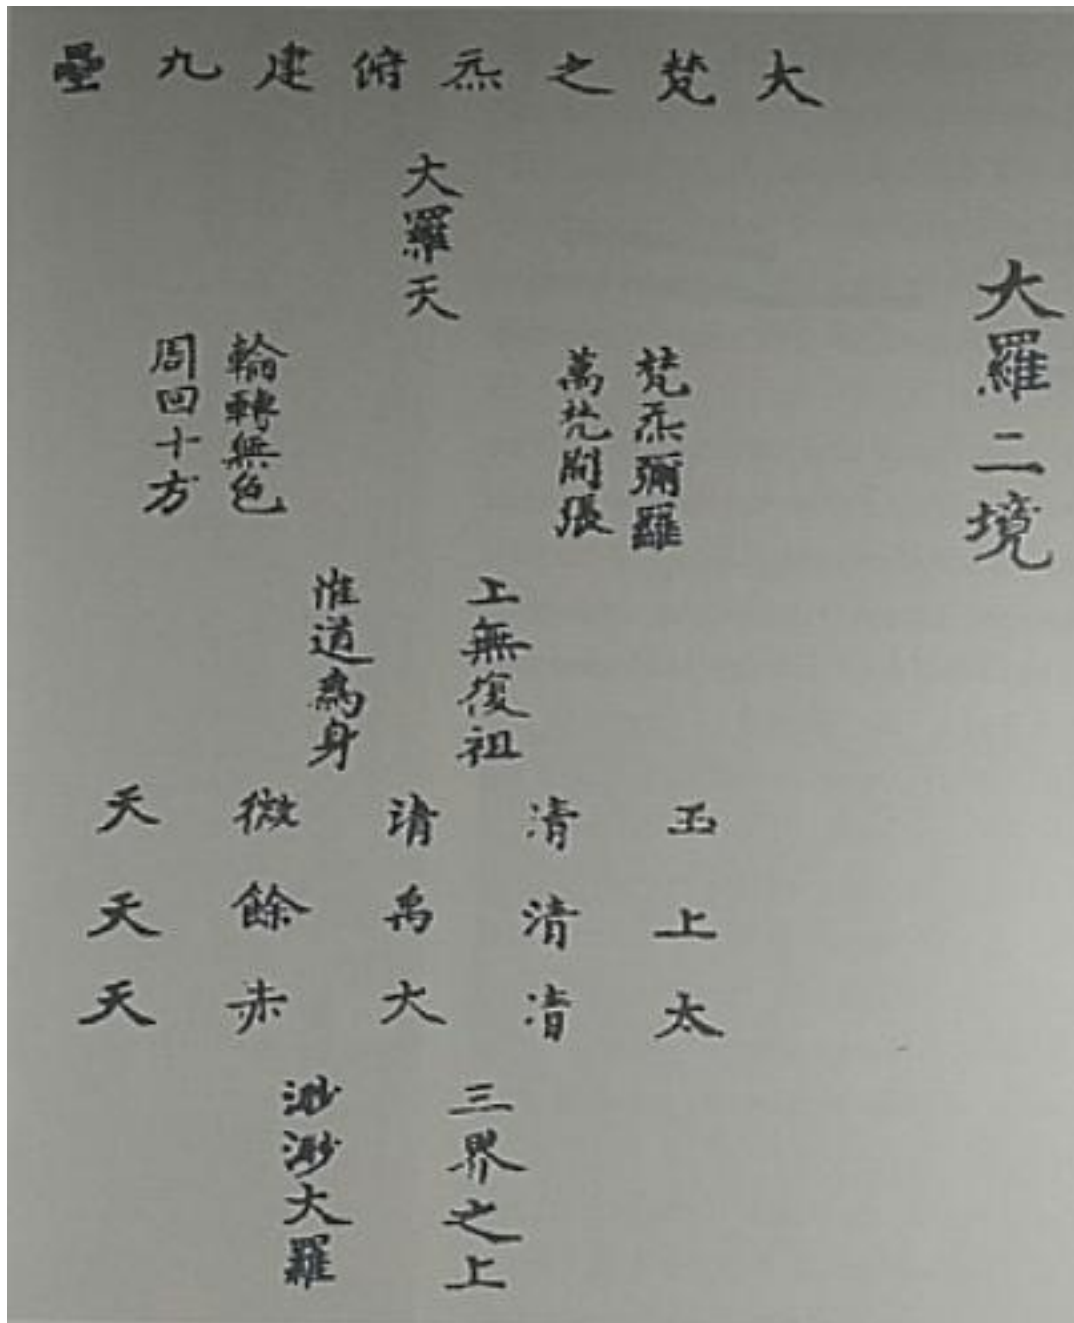 大羅二境
大梵之炁俯建九壘
大羅天
梵炁彌羅
萬梵開張
輪轉無色
周回十方
上無復祖
惟道為身
玉清清微天
上清禹餘天
太清大赤天
三界之上
渺渺大羅